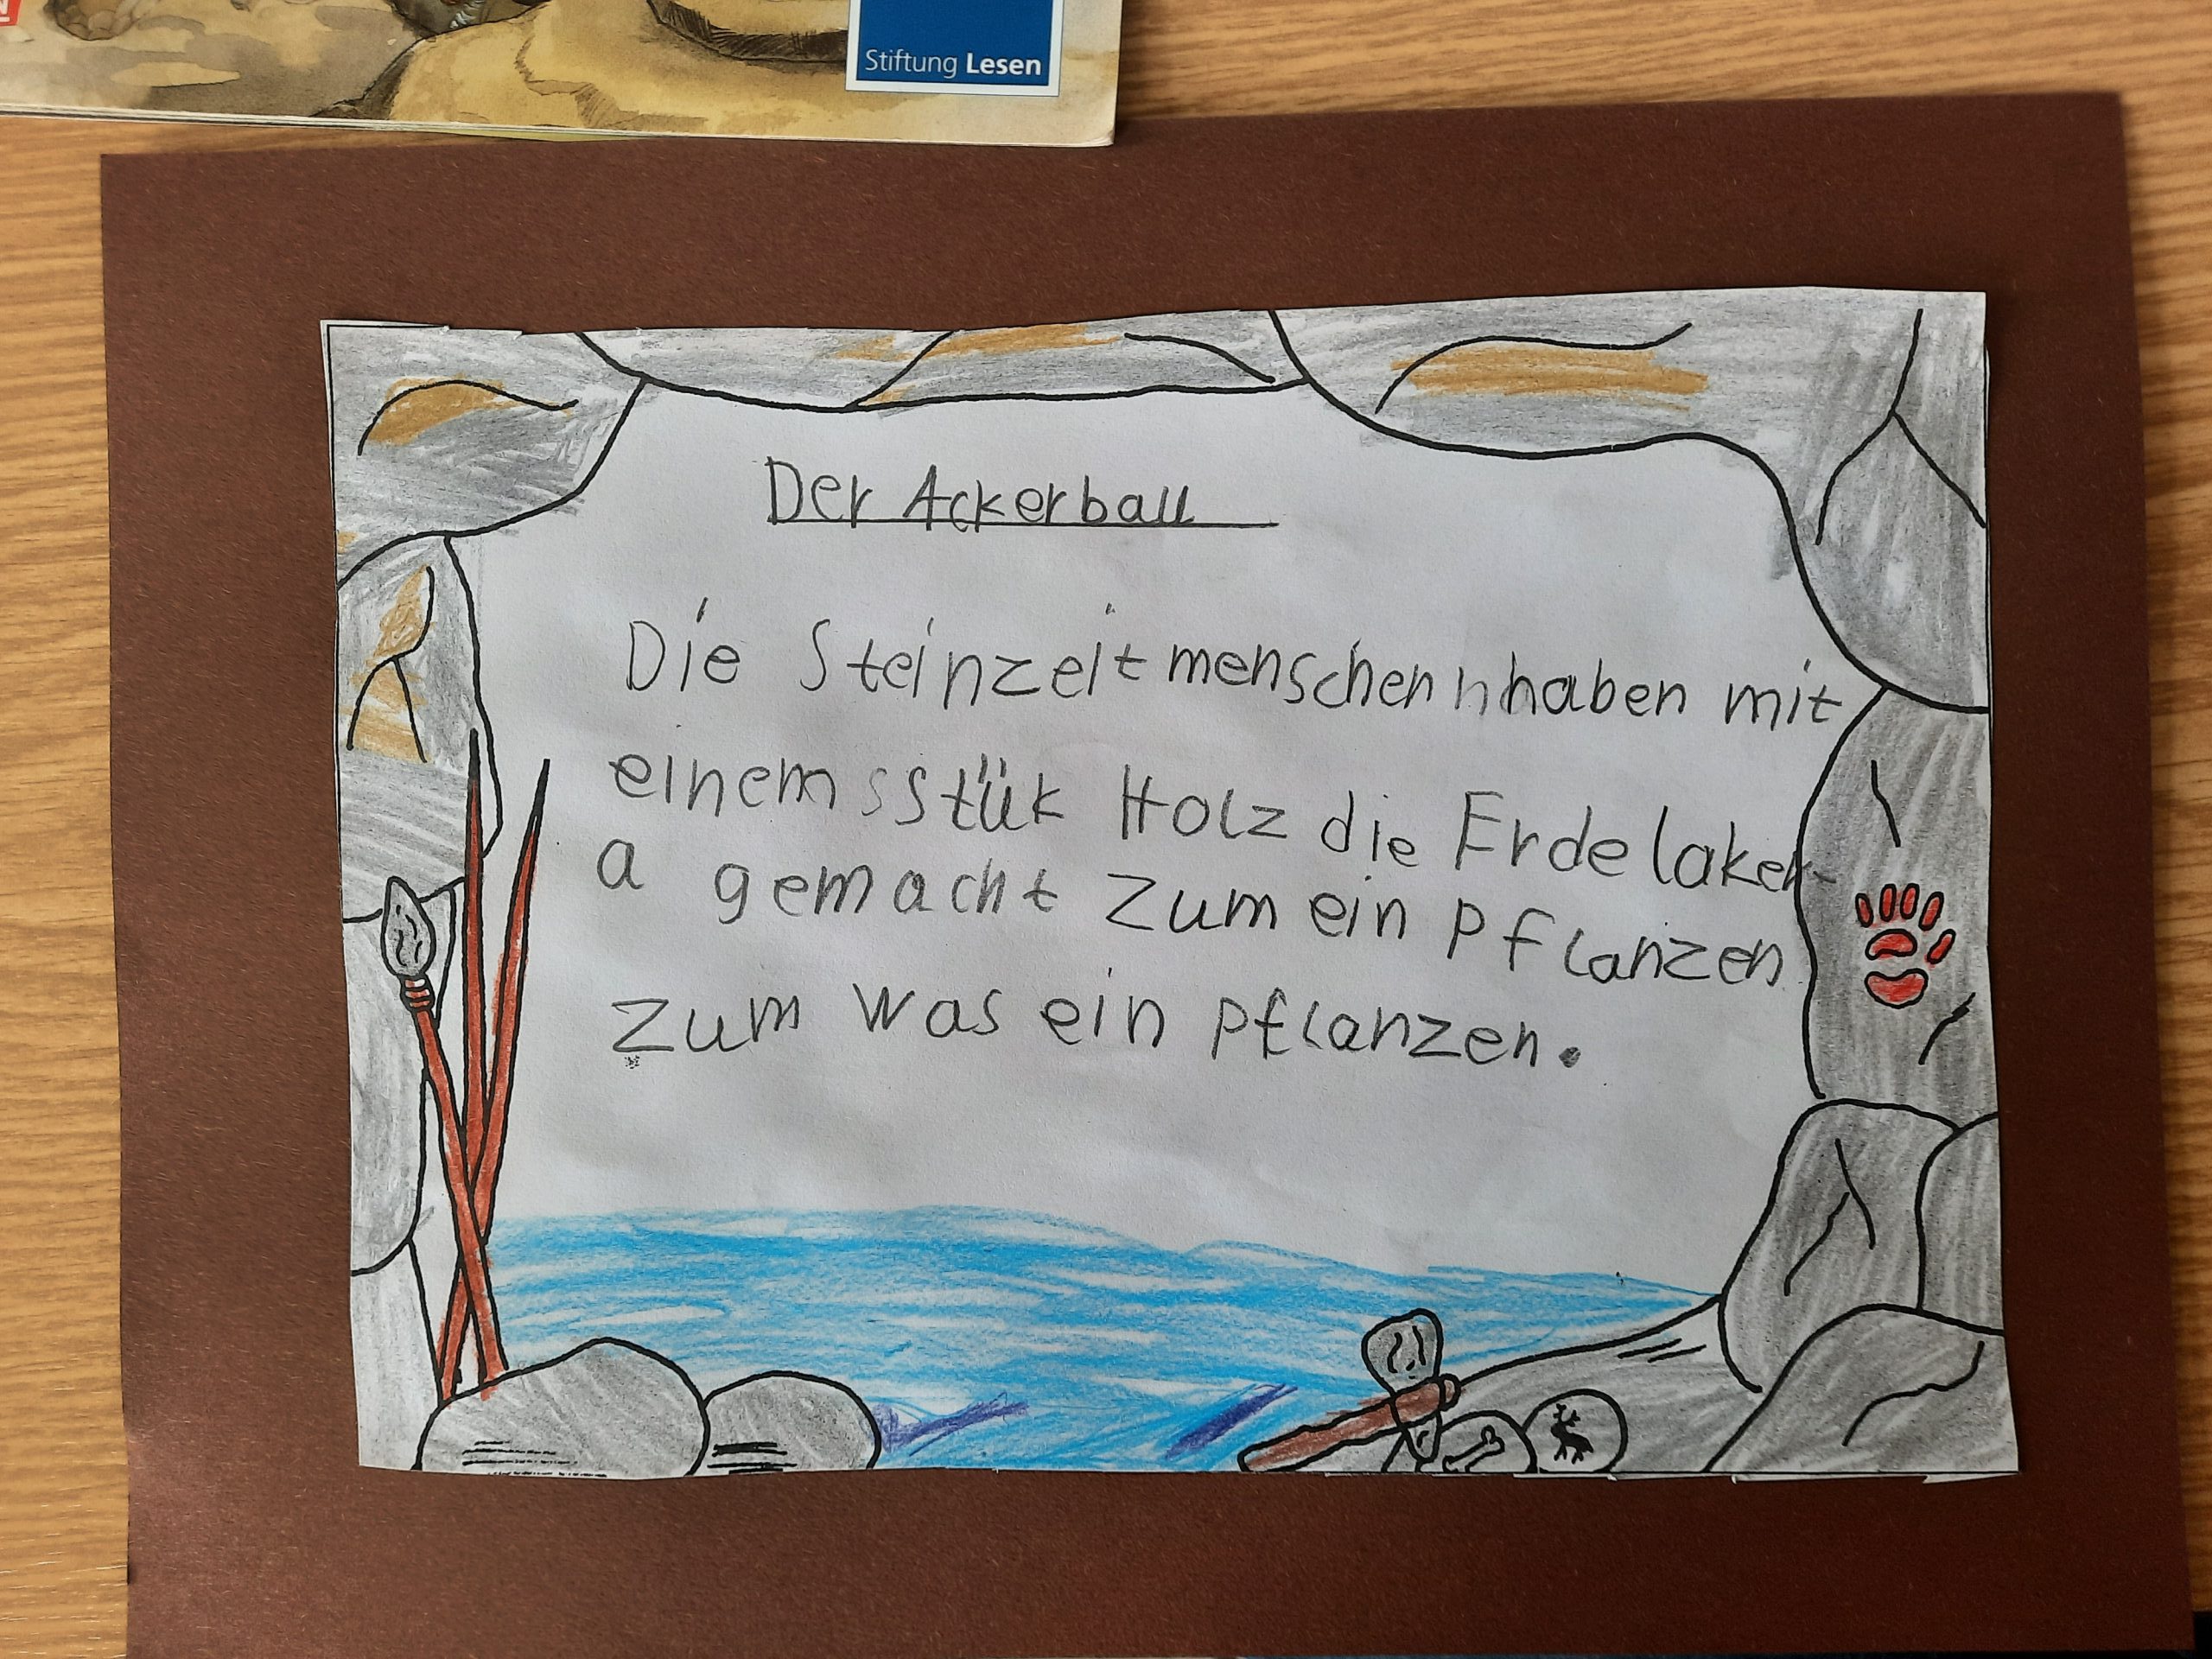 Stiftung Lesen
Der Ackerball
Die Steinzeitmenschen nhaben mit
einem sStük Holz die Erde laker
a gemacht zum ein pflanzen
zum was ein pflanzen.